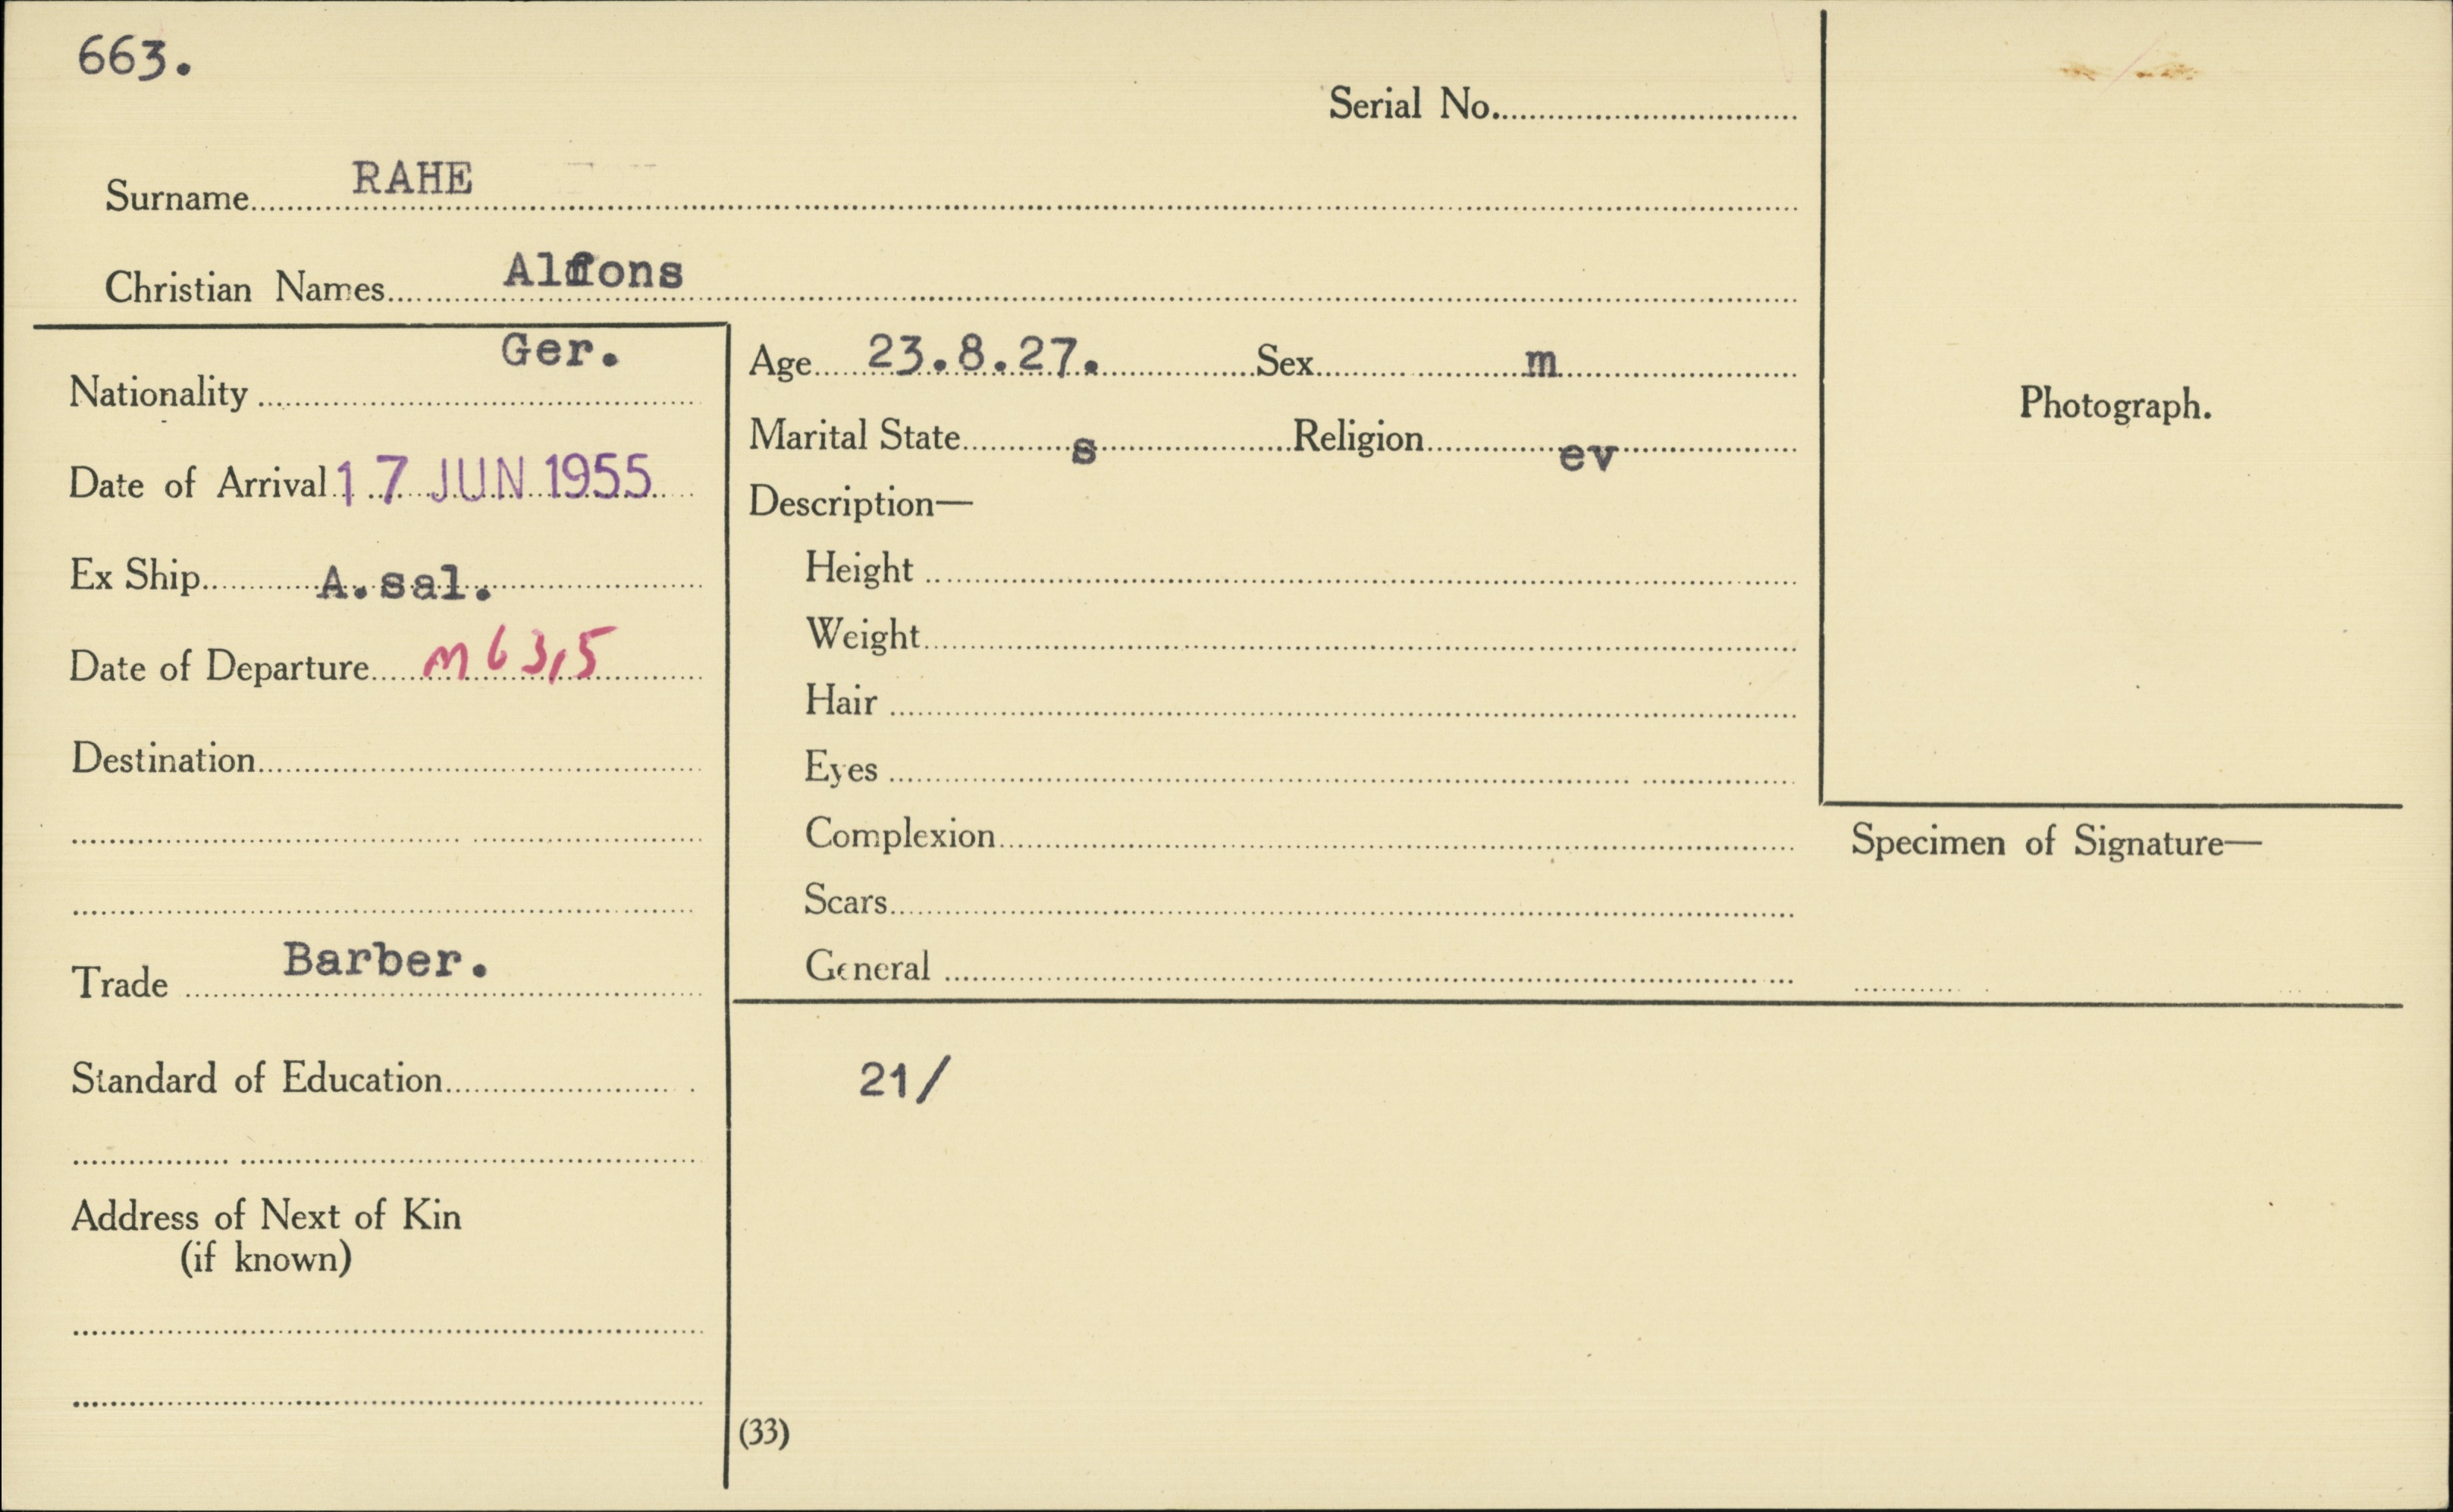 663.
Serial No.
Surname RAHE
Christian Names Alfons
Nationality Ger.
Date of Arrival 17 JUN 1955
Ex Ship A.sal.
Date of Departure M 63,5
Destination
Trade Barber.
Standard of Education
Address of Next of Kin
(if known)
Age 23.8.27. Sex m
Marital State s Religion ev
Description—
Height
Weight
Hair
Eyes
Complexion
Scars
General
21/
(33)
Photograph.
Specimen of Signature—